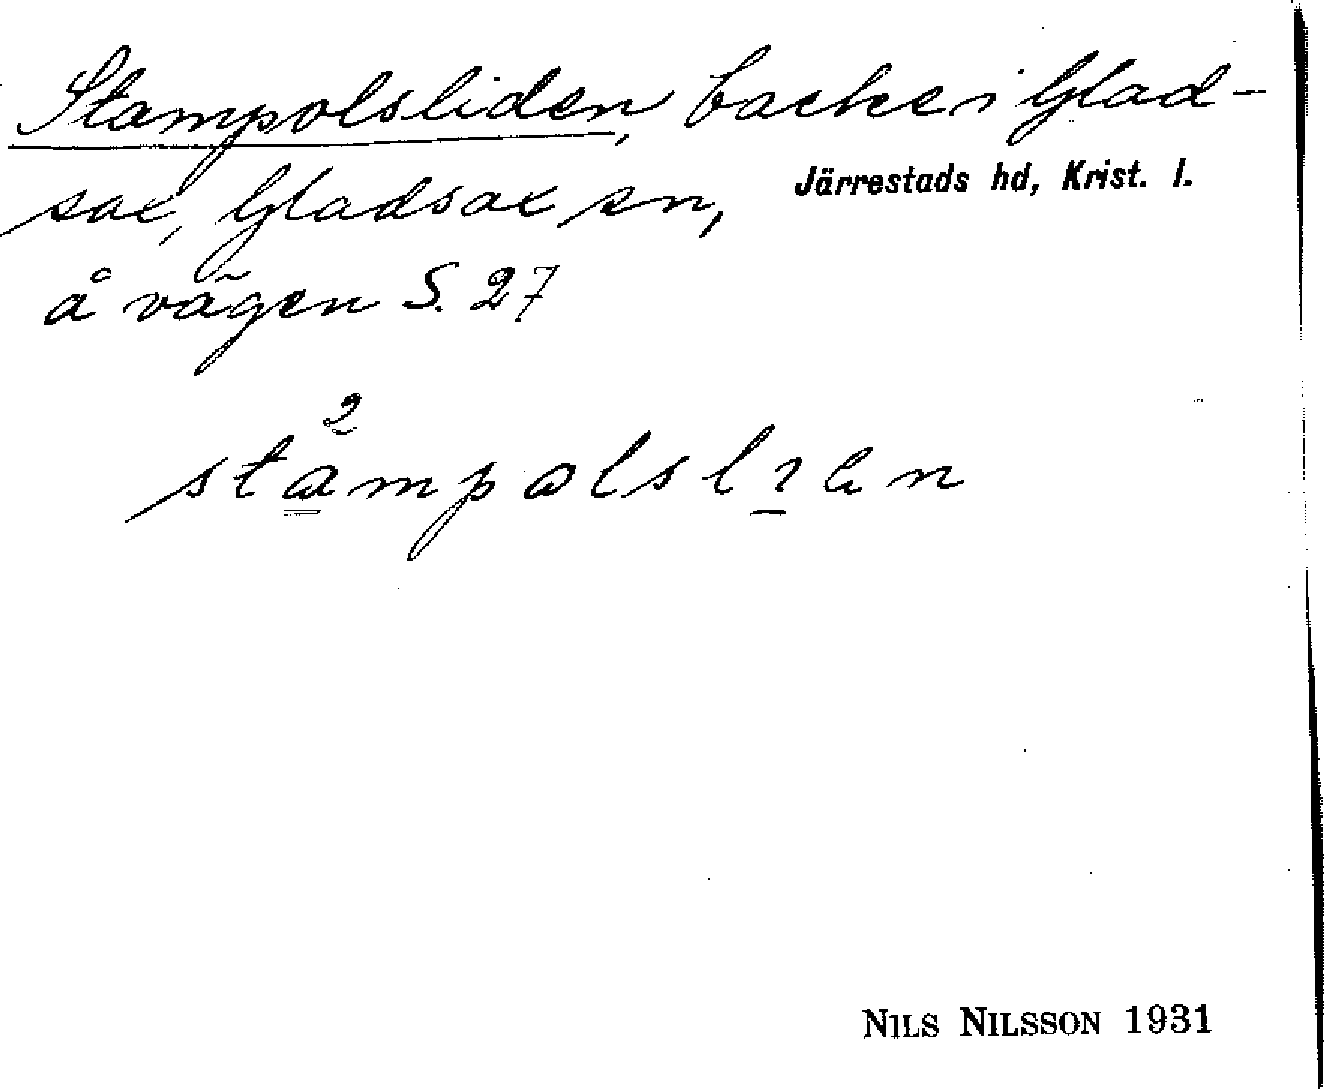 Stampolsliden, backe i Glad-
sax, Gladsax sn, Järrestads hd, Krist. l.
å vägen S. 27
NILS NILSSON 1931